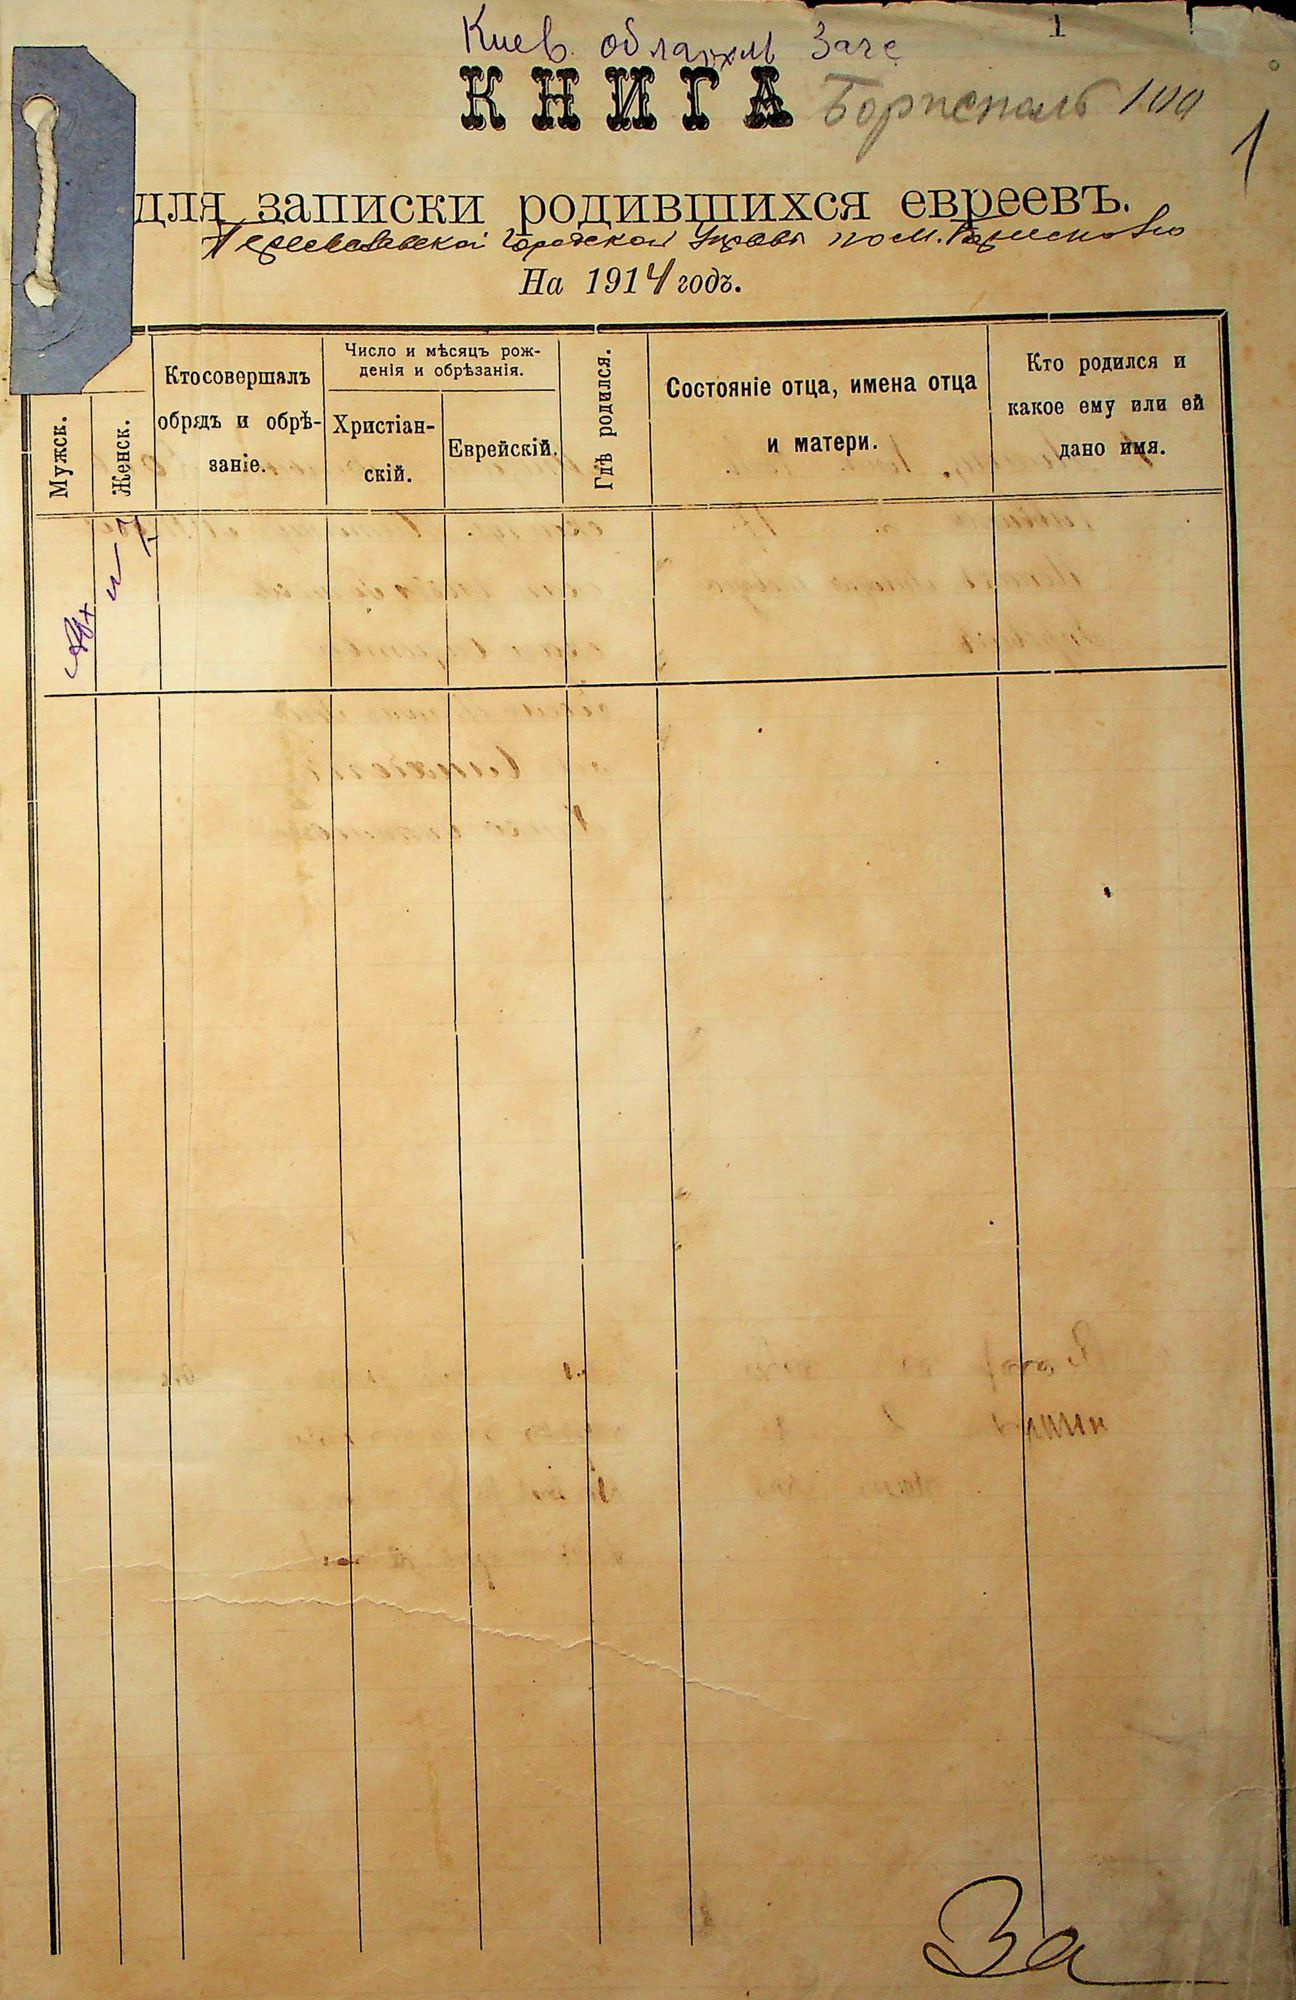 Киев. облархив Загс
1
КНИГА
Борисполь 100
1
для записки родившихся евреевъ.
Переяславской Городской Управы по м. Борисполю
На 1914 годъ.
Мужск.
Женск.
Кто совершалъ
обрядъ и обрѣ-
заніе.
Число и мѣсяцъ рож-
денія и обрѣзанія.
Христіан-
скій.
Еврейскій.
Гдѣ родился.
Состояніе отца, имена отца
и матери.
Кто родился и
какое ему или ей
дано имя.
За